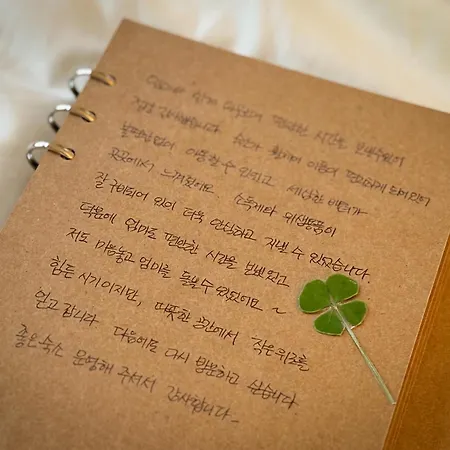 엄마와 함께 덕분에 편안한 시간을 보낼수있어
정말 감사했습니다. 숙소가 휠체어 이동이 편리하게 되어있어
불편함없이 이동할 수 있었고 세심한 배려가
곳곳에서 느껴졌어요. 소독제와 위생용품이
잘 구비되어 있어 더욱 안심하고 지낼 수 있었습니다.
덕분에 엄마도 편안한 시간을 보냈고
저도 마음놓고 엄마를 돌볼수 있었어요~
힘든 시기이지만, 따뜻한 공간에서 작은위로를
얻고 갑니다. 다음에도 다시 방문하고 싶습니다
좋은숙소 운영해 주셔서 감사합니다_